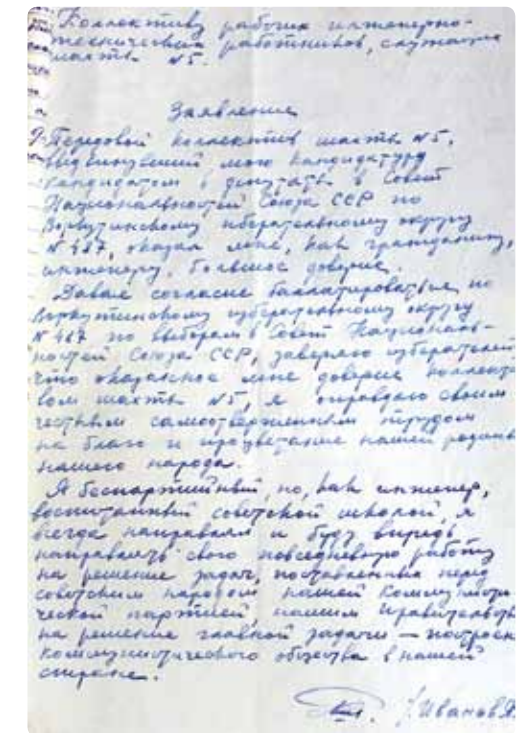 Коллективу рабочих инженерно-
технических работников, служащих
шахты №5.
Заявление
Передовой коллектив шахты №5,
выдвинувший мою кандидатуру
кандидатом в депутаты в Совет
Национальностей Союза ССР по
Воркутинскому избирательному округу
№487, оказал мне, как гражданину,
инженеру, большое доверие.
Давая согласие баллатироваться по
Воркутинскому избирательному округу
№487 по выборам в Совет Националь-
ностей Союза ССР, заверяю избирателей
что оказанное мне доверие коллекти
вом шахты №5, я оправдаю своим
честным самоотверженным трудом
на благо и процветание нашей родины
нашего народа.
Я беспартийный, но, как инженер,
воспитанный советской школой, я
всегда направлял и буду впредь
направлять свою повседневную работу
на решение задач, поставленных перед
советским народом нашей Коммунисти
ческой партией, нашим Правительств
на решение главной задачи — построен
коммунистического общества в нашей
стране.
/Иванов А.